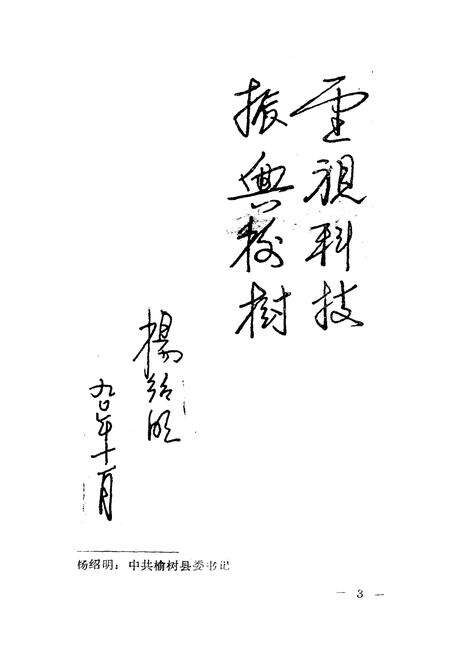 重视科技
振兴榆树
杨绍明
九〇年十一月
杨绍明：中共榆树县委书记
— 3 —